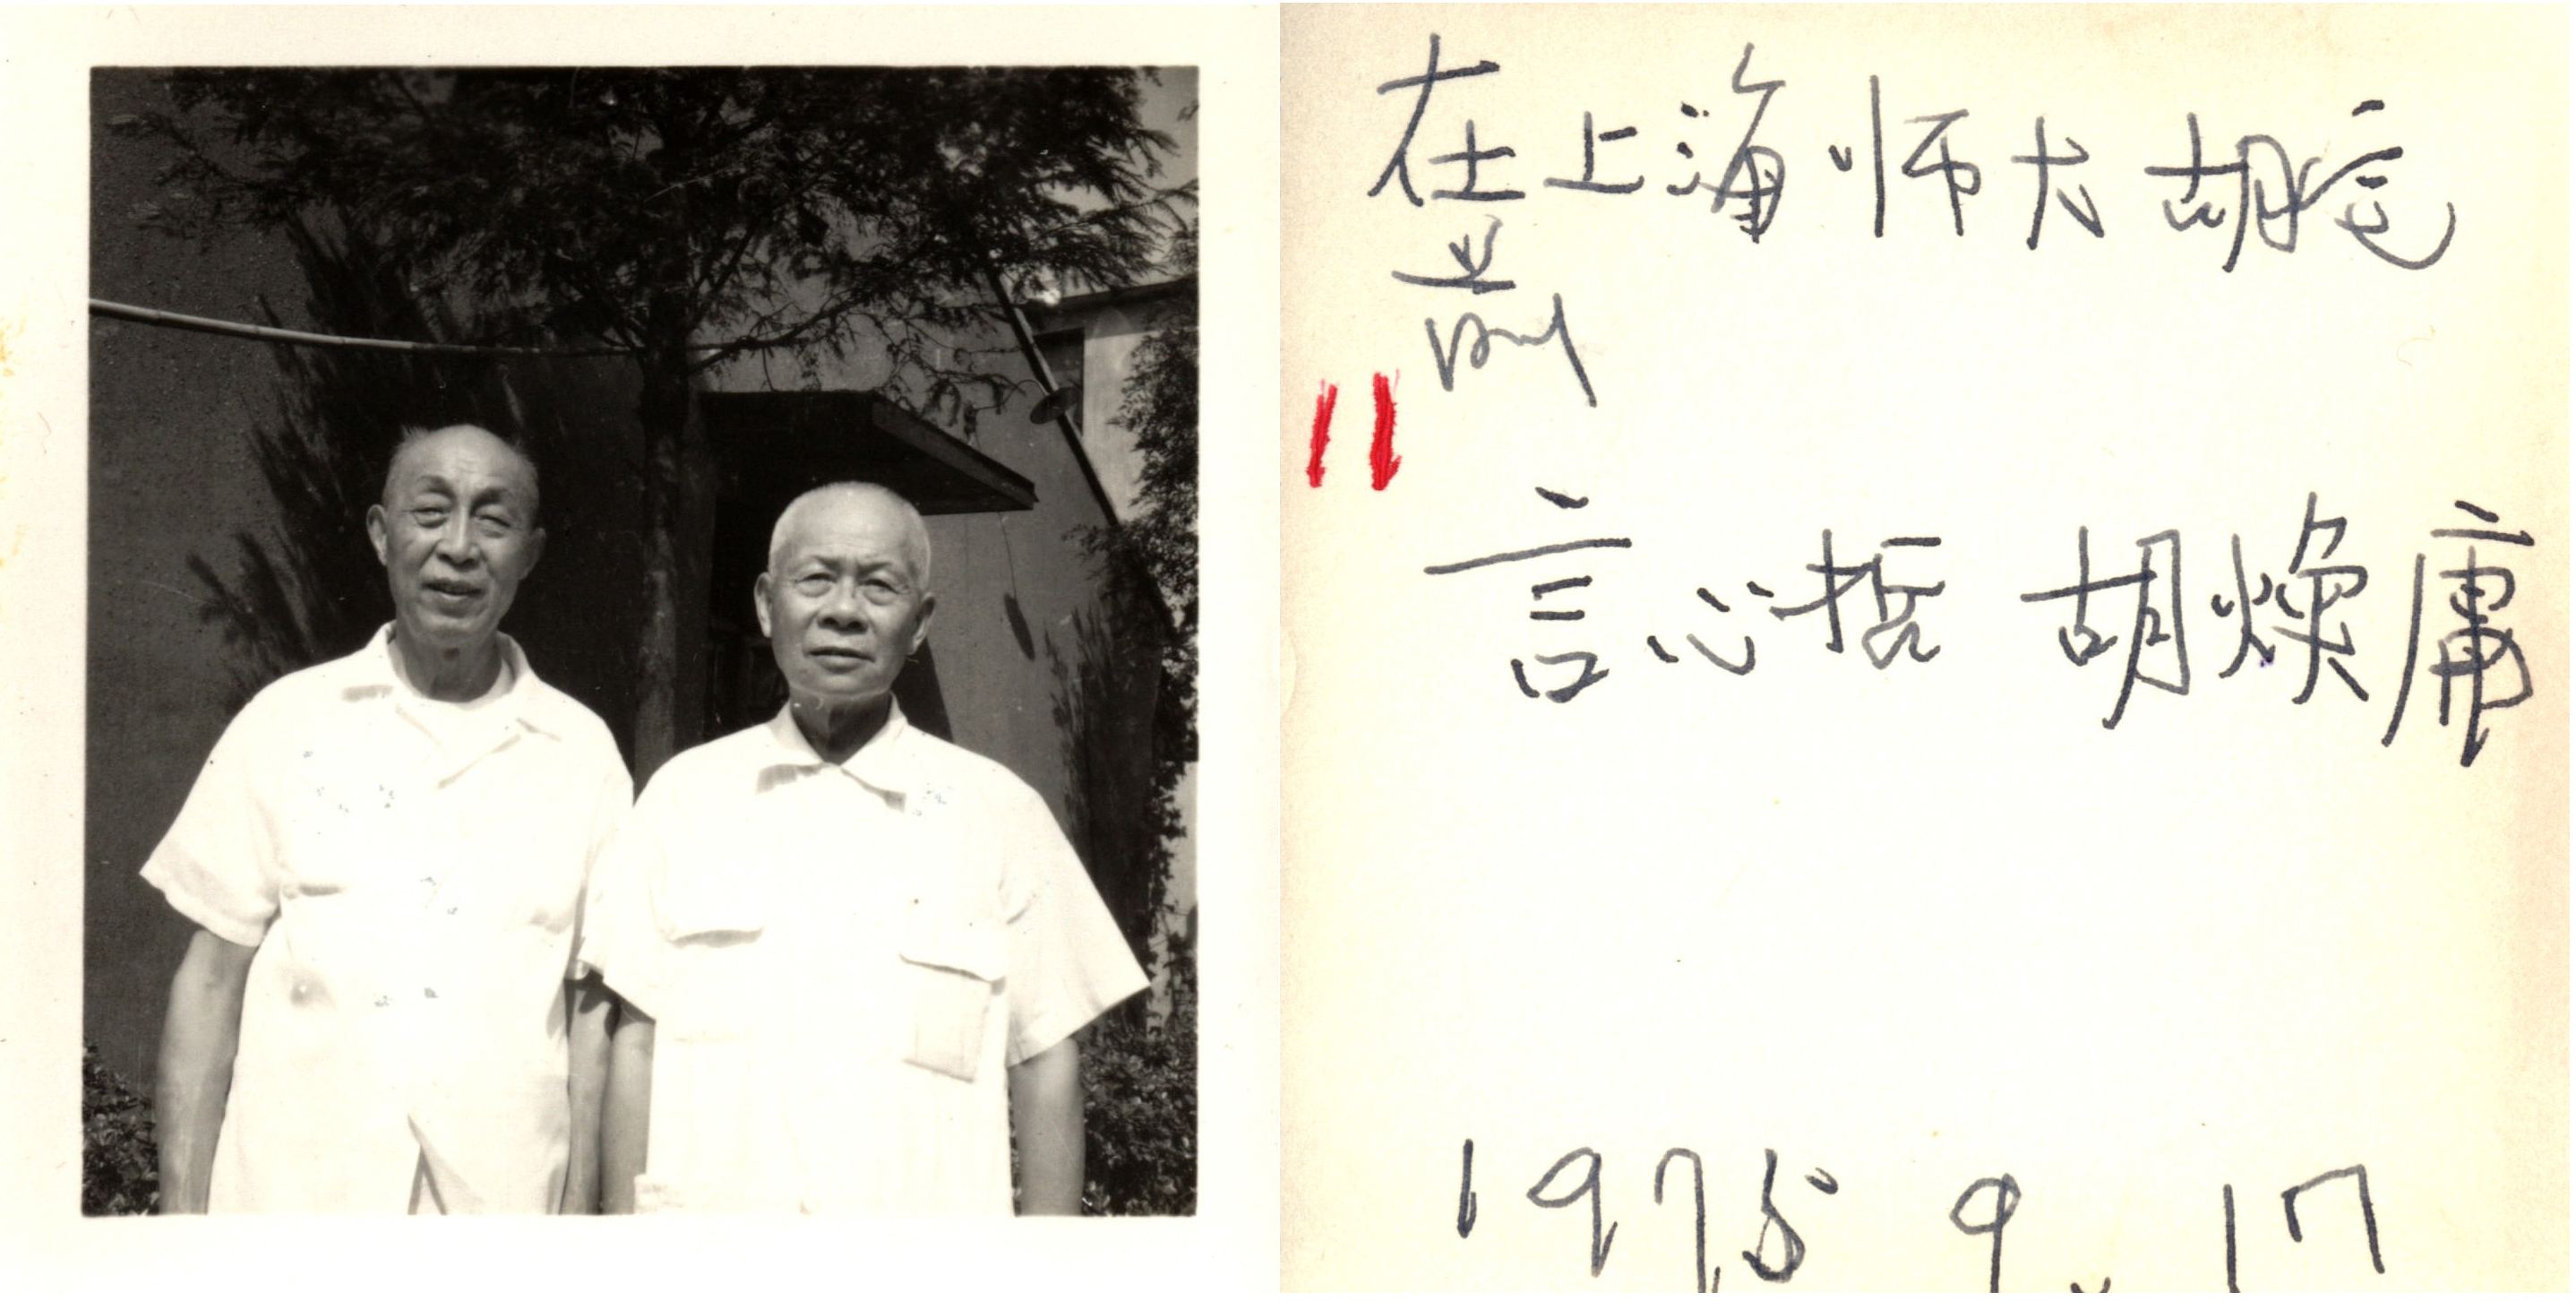 在上海师大胡宅
前
言心哲 胡焕庸
1975 9.17